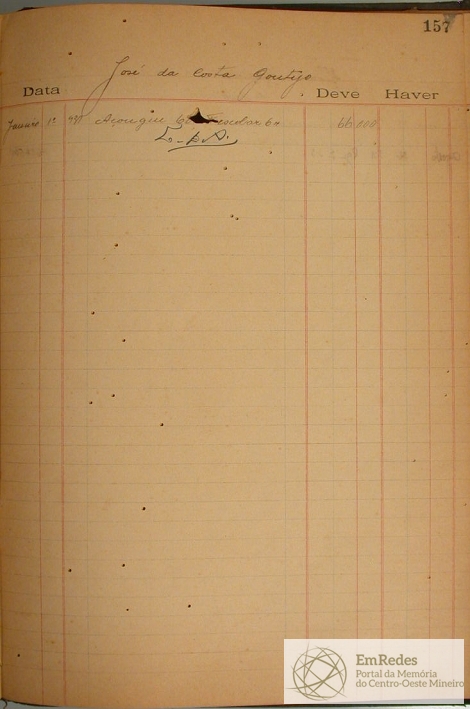 157
José da Costa Gontijo
Data Deve Haver
Janeiro 1º 931 Açougue 60 66.000
EmRedes
Portal da Memória
do Centro-Oeste Mineiro